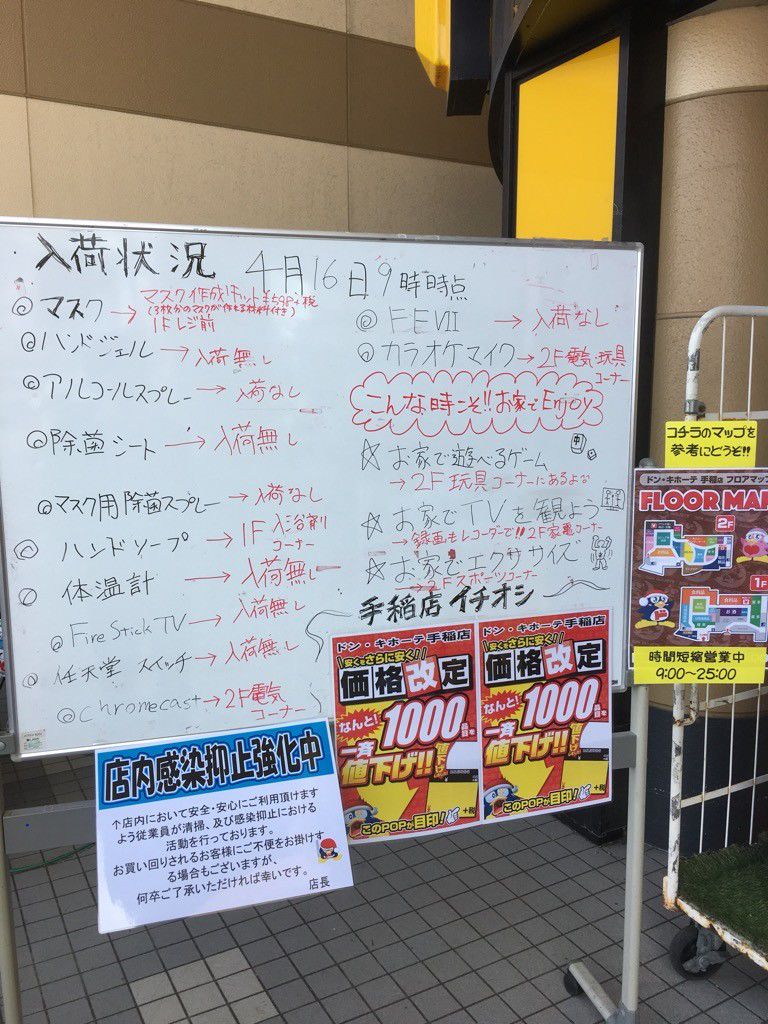 入荷状況 4月16日9時時点
◎マスク→マスク作成キット¥598+税
(3枚分のマスクが作れる材料付き)
1Fレジ前
◎ハンドジェル→入荷無し
◎アルコールスプレー→入荷なし
◎除菌シート→入荷無し
マスク用除菌スプレー→入荷なし
◎ハンドソープ→1F入浴剤
コーナー
◎体温計→入荷無し
◎Fire Stick TV→入荷無し
◎任天堂スイッチ→入荷無し
◎chromecast→2F電気
コーナー
◎FFVII→入荷なし
◎カラオケマイク→2F電気・玩具
コーナー
こんな時こそ!!お家でEnjoy
☆お家で遊べるゲーム
→2F玩具コーナーにあるよ
☆お家でTVを観よう
→録画もレコーダーで!!2F家電コーナー
☆お家でエクササイズ
→2Fスポーツコーナー
手稲店イチオシ
ドン・キホーテ手稲店
安くをさらに安く!
価格改定
なんと!
1000
品目を
一斉
値下げ!!
このPOPが目印!
+税
ドン・キホーテ手稲店
安くをさらに安く!
価格改定
なんと!
1000
品目を
一斉
値下げ!!
このPOPが目印!
+税
店内感染抑止強化中
↑店内において安全・安心にご利用頂けます
よう従業員が清掃、及び感染抑止における
活動を行っております。
お買い回りされるお客様にご不便をお掛けす
る場合もございますが、
何卒ご了承いただければ幸いです。
店長
コチラのマップを
参考にどうぞ!!
ドン・キホーテ 手稲店 フロアマップ
FLOOR MAP
2F
1F
時間短縮営業中
9:00~25:00